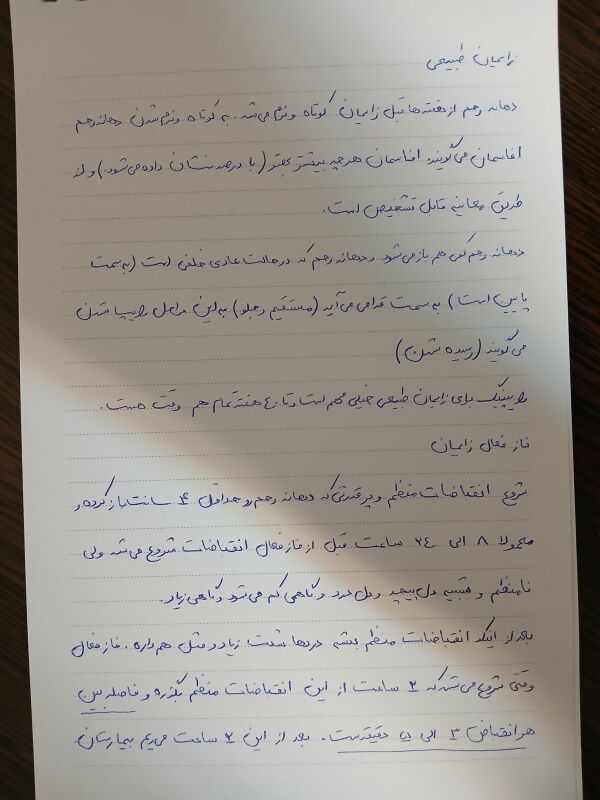 زایمان طبیعی
دهانه رحم از هفته ها قبل زایمان کوتاه و نرم می‌شه. به کوتاه و نرم شدن دهانه رحم
افاسمان می‌گویند. افاسمان هر چه بیشتر بهتر (با درصد نشان داده می‌شود.) و از
طریق معاینه قابل تشخیص است.
دهانه رحم کمی هم باز می‌شود و دهانه رحم که در حالت عادی خلفی است (به سمت
پایین است) به سمت قدامی می‌آید (مستقیم و جلو) به این مراحل رایپ شدن
می‌گویند (رسیده شدن)
رایپینگ برای زایمان طبیعی خیلی مهم است و تا ۴۰ هفته تمام هم وقت هست.
فاز فعال زایمان
شروع انقباضات منظم و پر قدرتی که دهانه رحم رو حداقل ۴ سانت باز کرده و
معمولا ۸ الی ۲۴ ساعت قبل از فاز فعال انقباضات شروع می‌شه ولی
نامنظم و شبیه دل پیچه و دل درد و گاهی کم می‌شود و گاهی زیاد.
بعد از اینکه انقباضات منظم بشه دردها شدت زیاد و مثل هم داره. فاز فعال
وقتی شروع می‌شه که ۲ ساعت از این انقباضات منظم بگذره و فاصله بین
هر انقباض ۳ الی ۵ دقیقه‌ست. بعد از این ۲ ساعت می‌ریم بیمارستان.